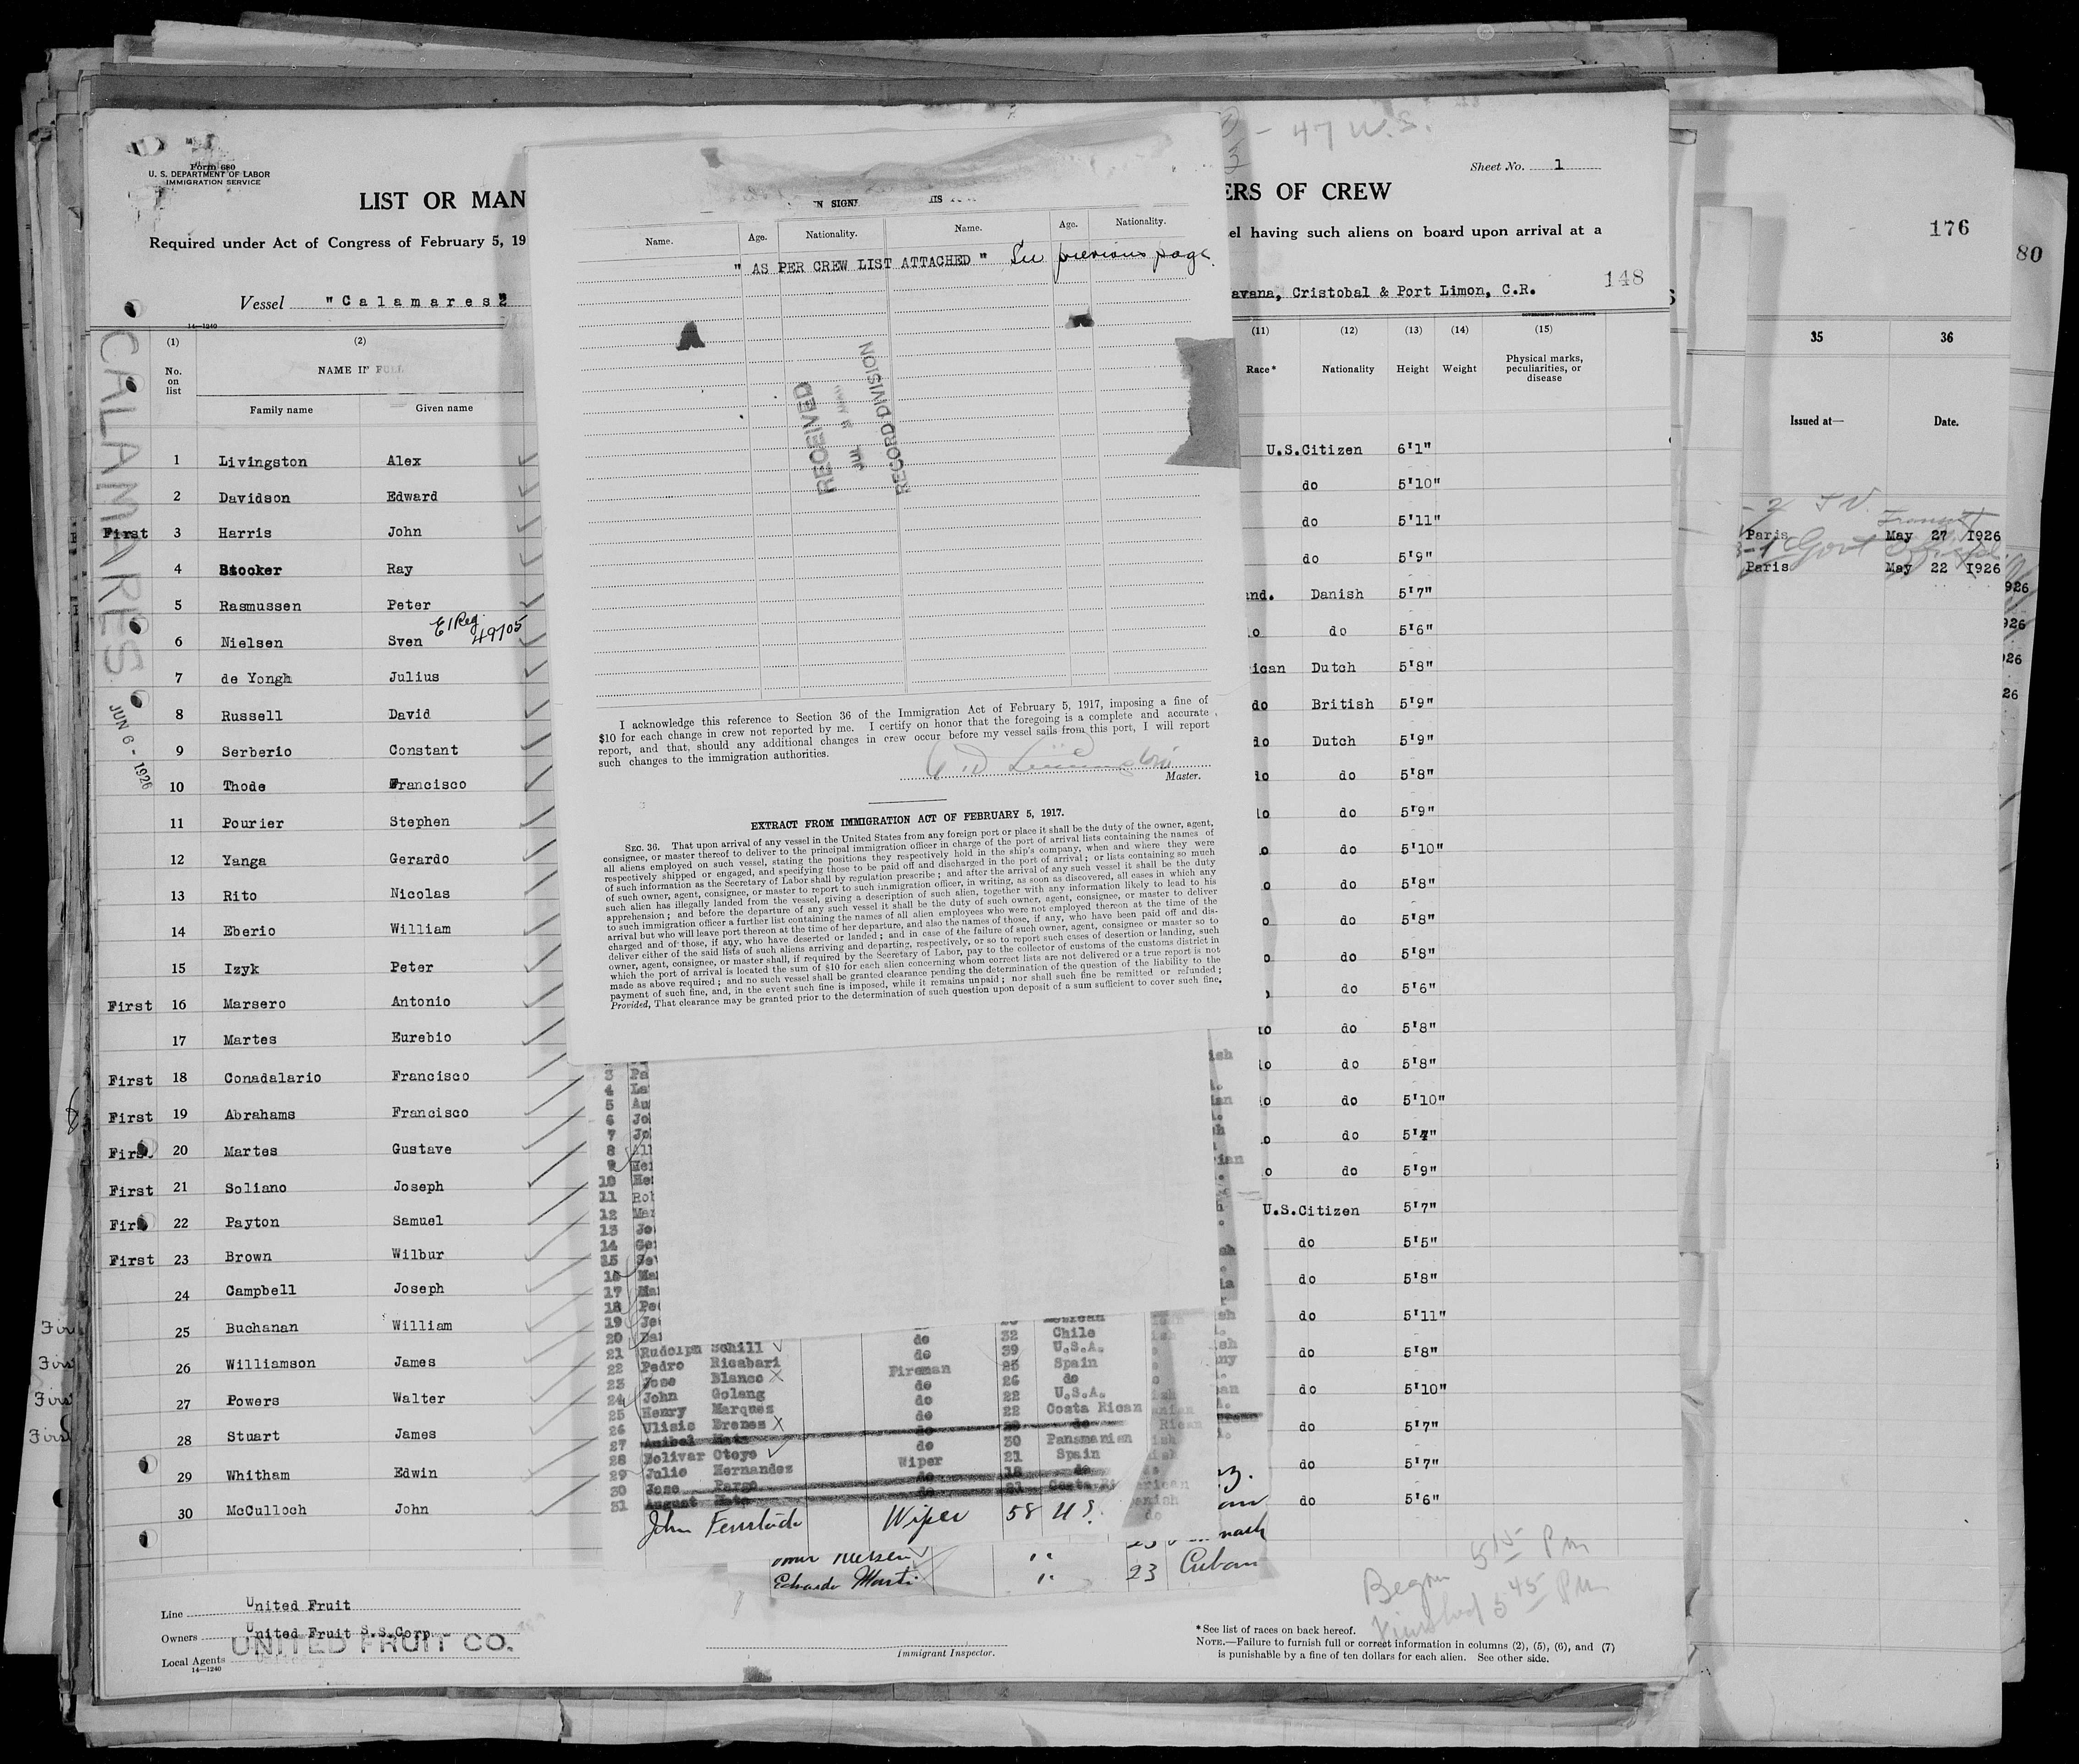 47 W.S.
Form 680
U. S. DEPARTMENT OF LABOR
IMMIGRATION SERVICE
Sheet No. 1
LIST OR MAN
ERS OF CREW
Required under Act of Congress of February 5, 19
el having such aliens on board upon arrival at a
Vessel "Calamares"
avana, Cristobal & Port Limon, C.R.
148
14—1240
(1) (2)
No. on list
NAME IN FULL
Family name Given name
(11) (12) (13) (14) (15)
Race* Nationality Height Weight Physical marks, peculiarities, or disease
CALAMARES
JUN 6 - 1926
1 Livingston Alex U.S.Citizen 6'1"
2 Davidson Edward do 5'10"
First 3 Harris John do 5'11"
4 Stocker Ray do 5'9"
5 Rasmussen Peter nd. Danish 5'7"
6 Nielsen Sven do 5'6"
49705
7 de Yongh Julius ican Dutch 5'8"
8 Russell David do British 5'9"
9 Serberio Constant do Dutch 5'9"
10 Thode Francisco do do 5'8"
11 Pourier Stephen do 5'9"
12 Yanga Gerardo do 5'10"
13 Rito Nicolas do 5'8"
14 Eberio William do 5'8"
15 Izyk Peter do 5'8"
First 16 Marsero Antonio do 5'6"
17 Martes Eurebio do 5'8"
First 18 Conadalario Francisco do 5'8"
First 19 Abrahams Francisco do 5'10"
First 20 Martes Gustave do 5'4"
First 21 Soliano Joseph do 5'9"
First 22 Payton Samuel U.S.Citizen 5'7"
First 23 Brown Wilbur do 5'5"
24 Campbell Joseph do 5'8"
25 Buchanan William do 5'11"
26 Williamson James do 5'8"
27 Powers Walter do 5'10"
28 Stuart James do 5'7"
29 Whitham Edwin do 5'7"
30 McCulloch John do 5'6"
Line United Fruit
Owners United Fruit S.S.Corp.
UNITED FRUIT CO.
Local Agents
14—1240
Immigrant Inspector.
Begun 5 15 PM
Finished 5 45 PM
*See list of races on back hereof.
NOTE.—Failure to furnish full or correct information in columns (2), (5), (6), and (7)
is punishable by a fine of ten dollars for each alien. See other side.
Name. Age. Nationality. Name. Age. Nationality.
" AS PER CREW LIST ATTACHED " See previous page.
RECEIVED
RECORD DIVISION
I acknowledge this reference to Section 36 of the Immigration Act of February 5, 1917, imposing a fine of
$10 for each change in crew not reported by me. I certify on honor that the foregoing is a complete and accurate
report, and that, should any additional changes in crew occur before my vessel sails from this port, I will report
such changes to the immigration authorities.
Master.
EXTRACT FROM IMMIGRATION ACT OF FEBRUARY 5, 1917.
SEC. 36. That upon arrival of any vessel in the United States from any foreign port or place it shall be the duty of the owner, agent,
consignee, or master thereof to deliver to the principal immigration officer in charge of the port of arrival lists containing the names of
all aliens employed on such vessel, stating the positions they respectively hold in the ship's company, when and where they were
respectively shipped or engaged, and specifying those to be paid off and discharged in the port of arrival; or lists containing so much
of such information as the Secretary of Labor shall by regulation prescribe; and after the arrival of any such vessel it shall be the duty
of such owner, agent, consignee, or master to report to such immigration officer, in writing, as soon as discovered, all cases in which any
such alien has illegally landed from the vessel, giving a description of such alien, together with any information likely to lead to his
apprehension; and before the departure of any such vessel it shall be the duty of such owner, agent, consignee, or master to deliver
to such immigration officer a further list containing the names of all alien employees who were not employed thereon at the time of the
arrival but who will leave port thereon at the time of her departure, and also the names of those, if any, who have been paid off and dis-
charged and of those, if any, who have deserted or landed; and in case of the failure of such owner, agent, consignee or master so to
deliver either of the said lists of such aliens arriving and departing, respectively, or so to report such cases of desertion or landing, such
owner, agent, consignee, or master shall, if required by the Secretary of Labor, pay to the collector of customs of the customs district in
which the port of arrival is located the sum of $10 for each alien concerning whom correct lists are not delivered or a true report is not
made as above required; and no such vessel shall be granted clearance pending the determination of the question of the liability to the
payment of such fine, and, in the event such fine is imposed, while it remains unpaid; nor shall such fine be remitted or refunded;
Provided, That clearance may be granted prior to the determination of such question upon deposit of a sum sufficient to cover such fine.
3 Pa
4 La
5 Au
6 Jo
7 Jo
8 All
9 He
10 He
11 Rob
12 Mar
13 Jo
14 Ge
15 Se
16 Ma
17 Ma
18 Pe
19 Je
20 Da do 32 Chile
21 Rudolph Schill do 39 U.S.A.
22 Pedro Ricabari Fireman 25 Spain
23 Jose Blanco do 26 do
24 John Golang do 22 U.S.A.
25 Henry Marquez do 22 Costa Rican
26 Ulisis Brenes do
27 Anibal Mata do 30 Panamanian
28 Bolivar Otoya Wiper 21 Spain
29 Julio Hernandez do 18 do
30 Jose Fargo do 21 Costa Ri
31 August Mata
John Wiper 58 U S.
Eduardo Marti " 23 Cuban
176
80
35 36
Issued at— Date.
Paris May 27 1926
Govt Official
Paris May 22 1926